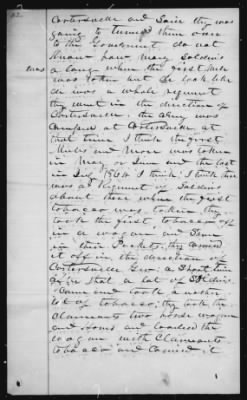 Cartersville and Said they was
going to turned them over
to the Goverment, do not
know how many Soldiers
a long when the first Mule
was taken but it look like
it was a whole regiment
they went in the direction of
Cartersville. the army was
camped at Cartersville at
that time I think the first
Mules and Mare was taken
in May or June and the last
in July 1864 I think. I think there
was a Regiment of Soldiers
about there when the first
tobacco was taken, they
took the first tobacco off
in a wagon and Some
in their Pockets, they carried
it off in the direction of
Cartersville Geo. a Short time
after that a lot of Soldiers
Came and took another
lot of tobacco, they took the
Claimants two horse wagon
and loaded the
wagon with Claimants
tobacco and carried it